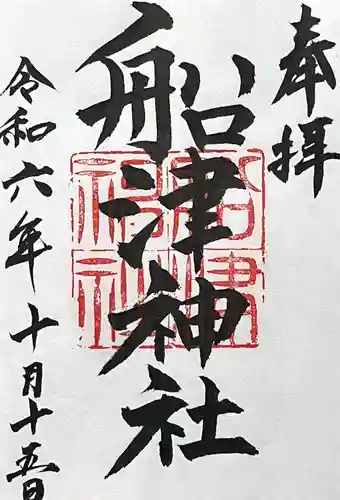 奉拝
船津神社
船津神社
令和六年十月十五日